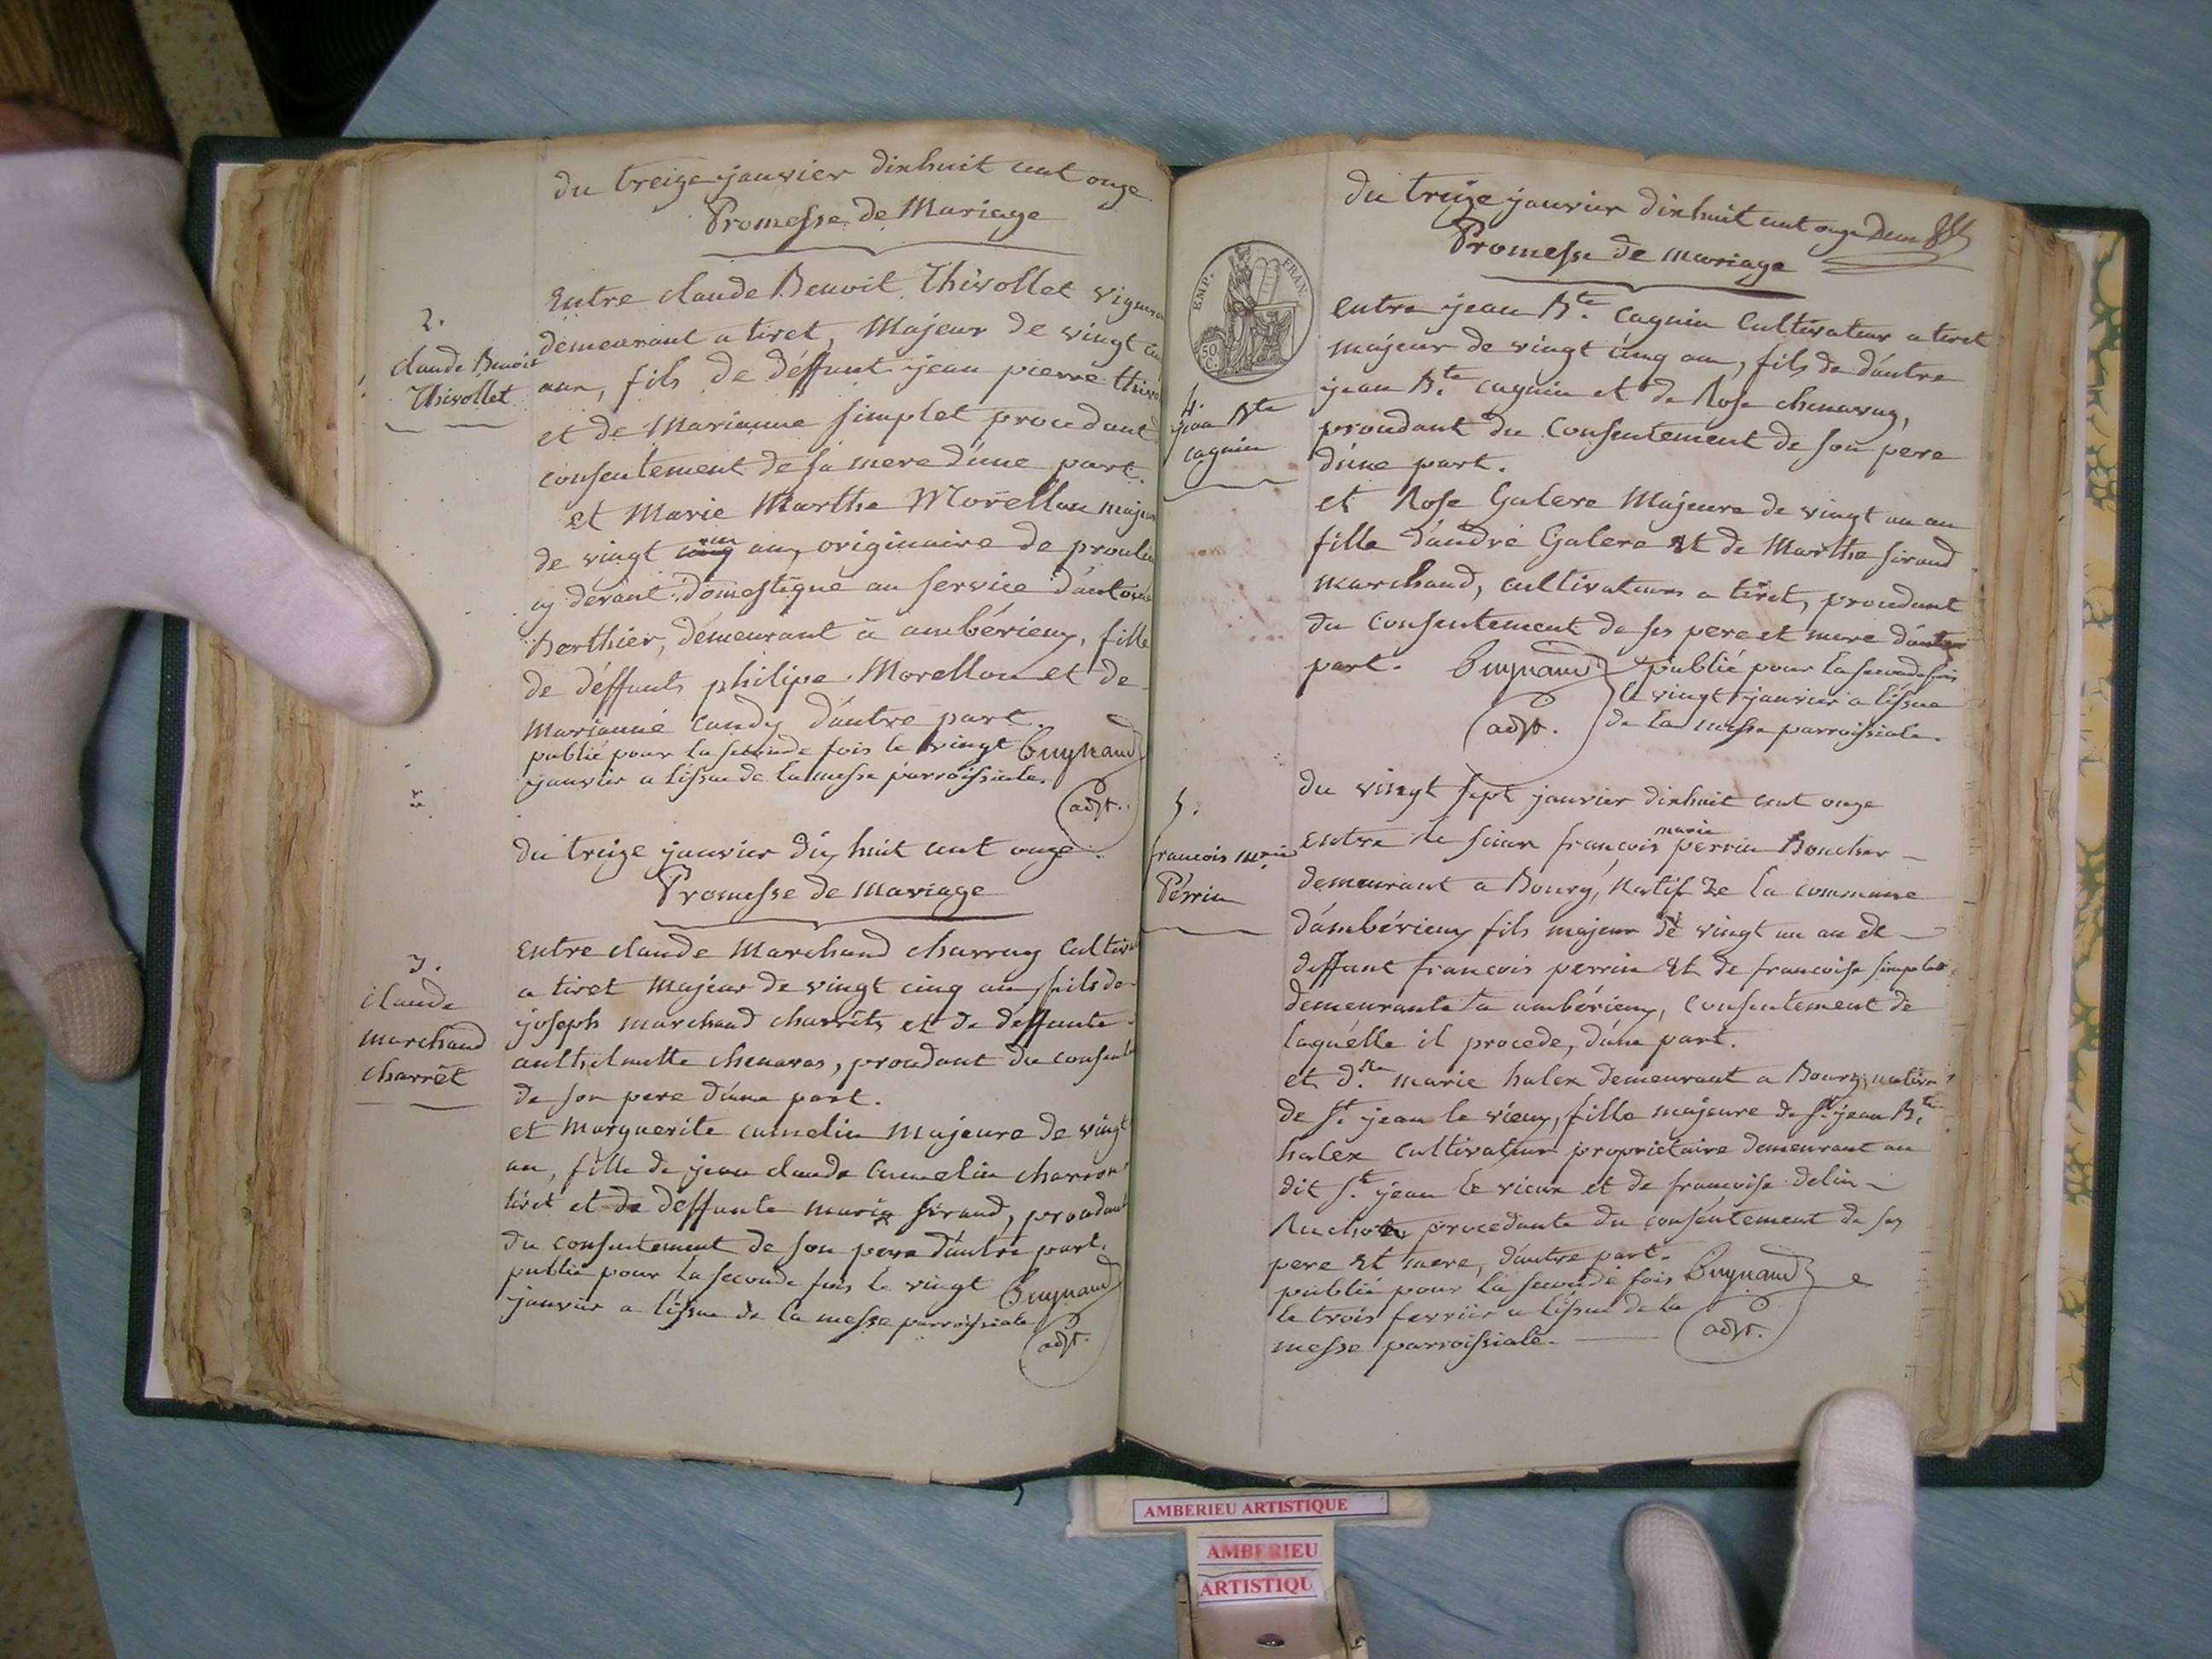 du treize janvier dixhuit cent onze
Promesse de Mariage
2.
claude Benoit
Thivollet
Entre claude Benoit Thivollet vigneron
demeurant a tiret, Majeur de vingt
ans, fils de déffunt jean pierre
et de Marianne simplet procedant
consentement de sa mere d'une part.
et Marie Marthe Morellon majeure
de vingt un ans originaire de
cy devant domestique au service d'antoine
Berthier, demeurant à ambérieux, fille
de déffunts philipe Morellon et de
Marianne candy d'autre part.
publié pour la seconde fois le vingt
janvier a l'issue de la messe parroissiale.
Guynaud
adjt.
du treize janvier dix huit cent onze
Promesse de Mariage
3.
claude
marchand
charrêt
Entre claude Marchand charruy
a tiret Majeur de vingt cinq ans fils de
joseph marchand charrêt et de deffunte
anthelmette chenavas, procdant du
de son pere d'une part.
et Marguerite cumelin Majeure de vingt
an, fille de jean claude Cumelin charron
tiret et de deffunte marie sirand, procdant
du consentement de son pere d'autre part.
publié pour la seconde fois le vingt
janvier a l'issue de la messe parroissiale
Guynaud
adjt.
du treize janvier dixhuit cent onze
Promesse de mariage
EMP. FRAN.
50 C.
4.
jean Bte
caguin
entre jean Bte. caguin Cultivateur a tiret
majeur de vingt cinq an, fils de d'autre
jean Bte. caguin et de Rose chenavas,
procdant du Consentement de son pere
d'une part.
et Rose Galere Majeure de vingt un an
fille d'andré Galere et de Marthe sirand
marchand, cultivateurs a tiret, procdant
du consentement de ses pere et mere d'autre
part.
Guynaud
adjt.
publié pour la seconde fois
le vingt janvier a l'issue
de la messe parroissiale.
du vingt sept janvier dixhuit cent onze
5.
francois marie
Pérrin
entre le sieur françois marie perrin Boucher
demeurant a Bourg, natif de la commune
d'ambérieux fils majeur de vingt un an de
deffunt francois perrin et de francoise simplet
demeurante a ambérieux, consentement de
laquélle il procede, d'une part.
et dlle. marie halex demeurant a Bourg, native
de St. jean le vieux, fille majeure de Sr. jean Bte.
halex cultivateur propriétaire demeurant au
dit St. jean le vieux et de françoise delin
Ruchon procedante du consentement de ses
pere et mere, d'autre part.
publié pour la seconde fois
le trois fevrier a l'issue de la
messe parroissiale.
Guynaud
adjt.
AMBERIEU ARTISTIQUE
AMBERIEU
ARTISTIQU